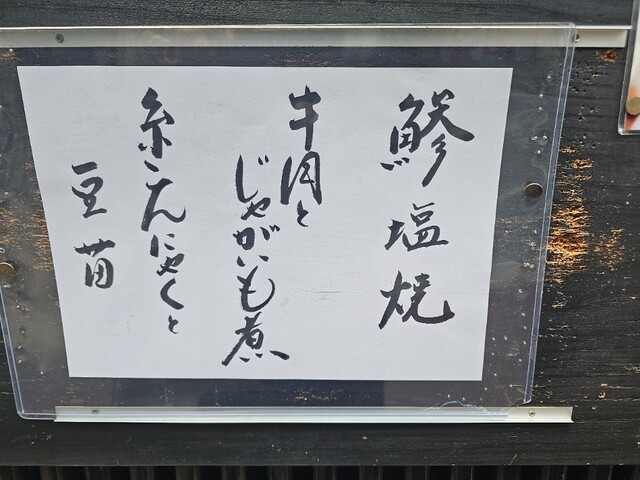 鯵塩焼
牛肉と
じゃがいも煮
糸こんにゃくと
豆苗